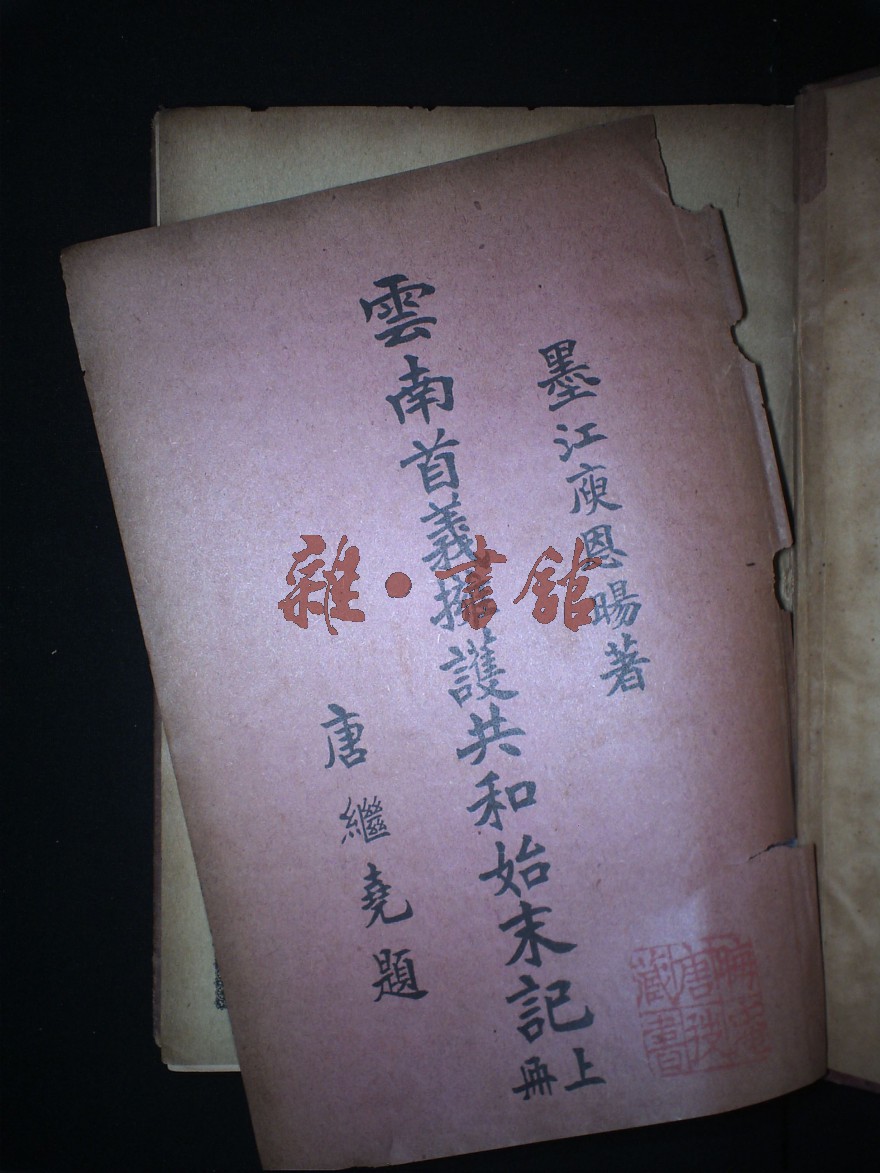 墨江庾恩暘著
雲南首義擁護共和始末記
上冊
唐繼堯題
雜·書館